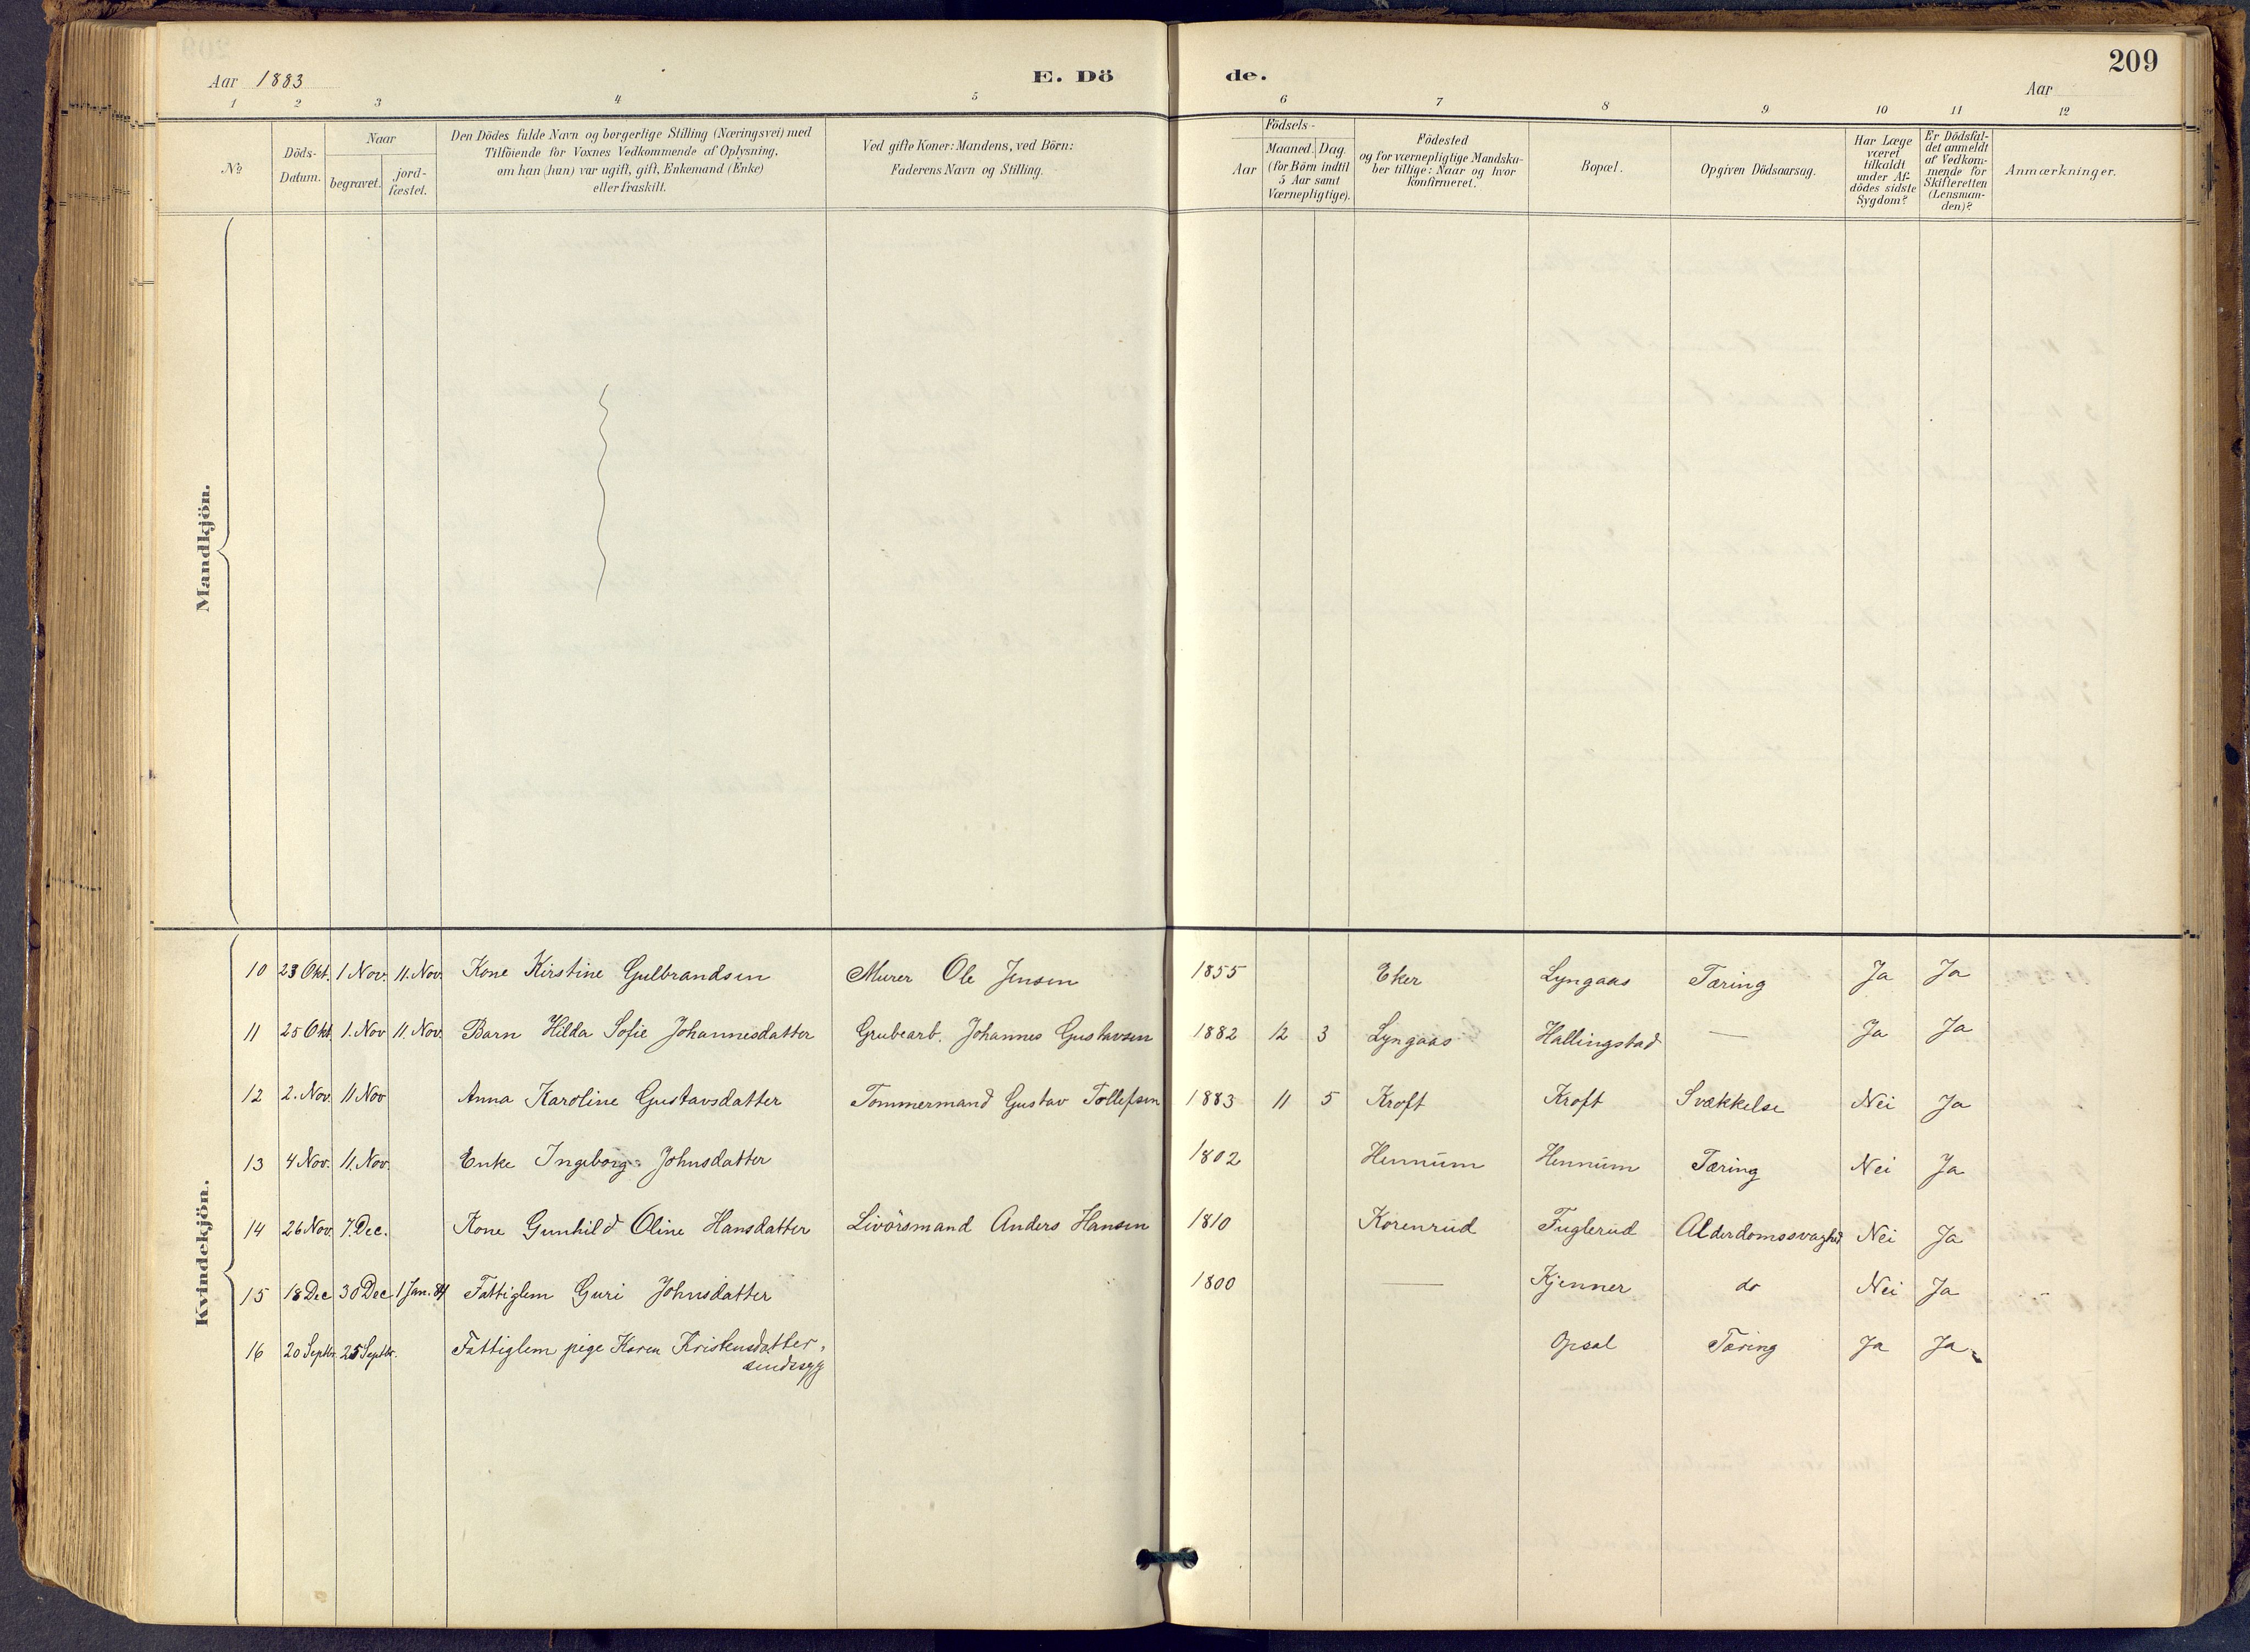 209
Aar 1883
E. Dö
de.
Aar
1 2 3 4 5 6 7 8 9 10 11 12
No
Döds-
Datum.
Naar
begravet.
jord-
fæstet.
Den Dödes fulde Navn og borgerlige Stilling (Næringsvei) med
Tilföiende for Voxnes Vedkommende af Oplysning,
om han (hun) var ugift, gift, Enkemand (Enke)
eller fraskilt.
Ved gifte Koner: Mandens, ved Börn:
Faderens Navn og Stilling.
Födsels-
Aar
Maaned. Dag.
(for Börn indtil
5 Aar samt
Værnepligtige).
Födested
og for værnepligtige Mandska-
ber tillige: Naar og hvor
konfirmeret.
Bopæl.
Opgiven Dödsaarsag.
Har Læge
været
tilkaldt
under Af-
dödes sidste
Sygdom?
Er Dödsfal-
det anmeldt
af Vedkom-
mende for
Skifteretten
(Lensman-
den)?
Anmærkninger.
Mandkjön.
Kvindekjön.
10 23 Okt. 1 Nov. 11. Nov. Kone Kirstine Gulbrandsen Murer Ole Jensen 1855 Eker Lyngaas Tæring Ja Ja
11 25 Okt. 1. Nov 11. Nov. Barn Hilda Sofie Johannesdatter Grubearb. Johannes Gustavsen 1882 12 3 Lyngaas Hallingstad — Ja Ja
12 2. Nov. 11 Nov Anna Karoline Gustavsdatter Tommermand Gustav Tollefsen 1883 11 5 Kroft Kroft Svækkelse Nei Ja
13 4 Nov. 11. Nov. Enke Ingeborg Johnsdatter 1802 Hennum Hennum Tæring Nei Ja
14 26 Nov. 7. Dec. Kone Gunhild Oline Hansdatter Livörsmand Anders Hansen 1810 Korenrud Fuglerud Alderdomssvaghed Nei Ja
15 18 Dec 30 Dec. 1 Jan. 84 Fattiglem Guri Johnsdatter 1800 — Kjenner do Nei Ja
16 20 Septbr. 25 Septbr. Fattiglem pige Karen Kristensdatter, Opsal Tæring Ja Ja